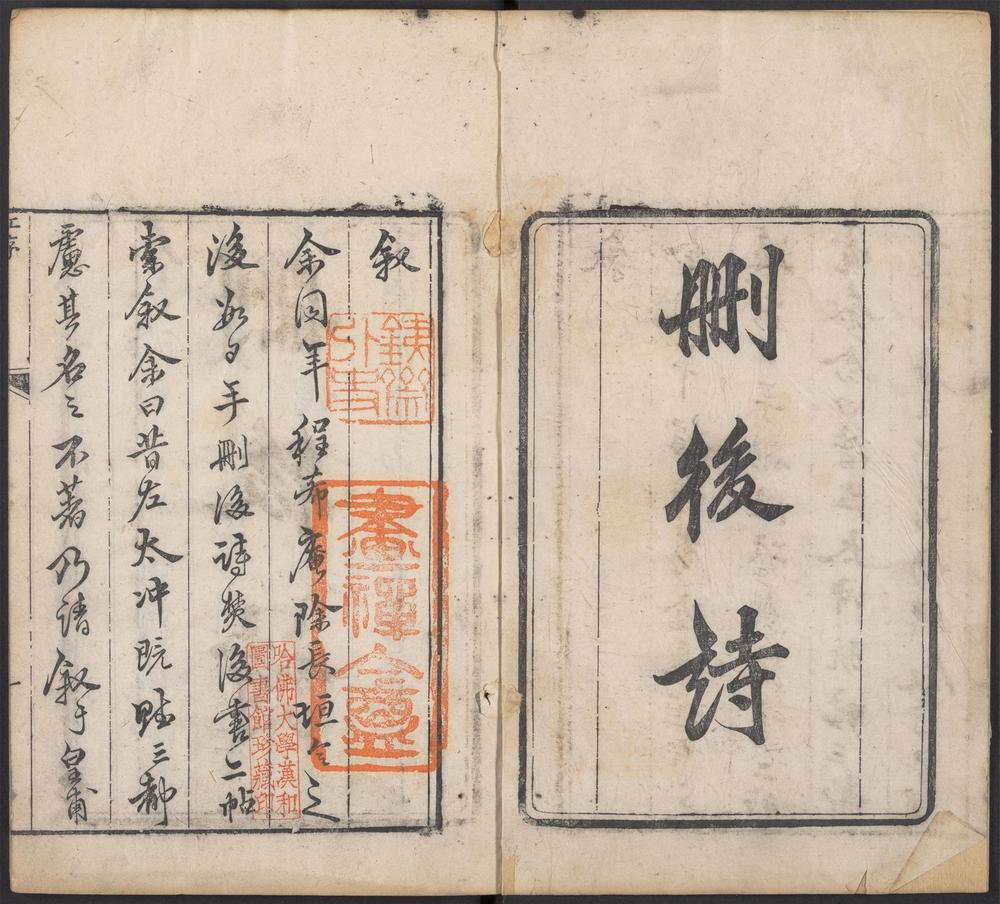 刪後詩
叙
余同年程希庵除長垣令之
後数日手刪後詩焚後書二帖
索叙余曰昔左太冲既賦三都
慮其名之不著乃請叙于皇甫
哈佛大學漢和
圖書館珍藏印
一